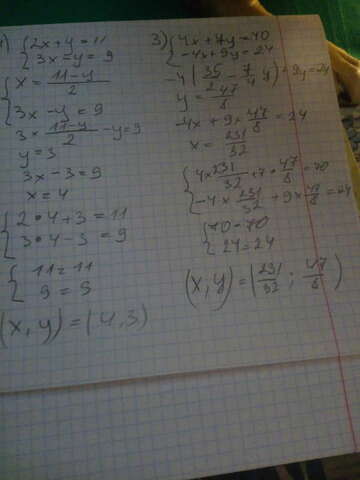 1) { 2x + y = 11
3x = y = 9
{ x = 11-y / 2
3x - y = 9
3 × 11-y / 2 - y = 9
y = 3
3x - 3 = 9
x = 4
{ 2 • 4 + 3 = 11
3 • 4 - 3 = 9
{ 11 = 11
9 = 9
(x, y) = (4, 3)
3) { 4x + 7y = 70
-4x + 9y = 24
-4 ( 35/2 - 7/4 y) + 9y = 24
y = 47/8
-4x + 9 × 47/8 = 24
x = 231/32
{ 4 × 231/32 + 7 • 47/8 = 70
-4 × 231/32 + 9 × 47/8 = 24
{ 70 - 70
24 = 24
(x, y) = ( 231/32 ; 47/8 )